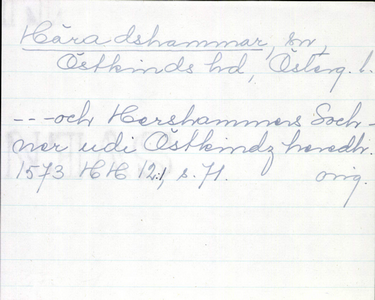 Häradshammar, sn,
Östkinds hd, Österg. l.
---och Hershammers Soch-
ner udi Östkindz heredh.
1573 HH 12:1, s. 71. orig.